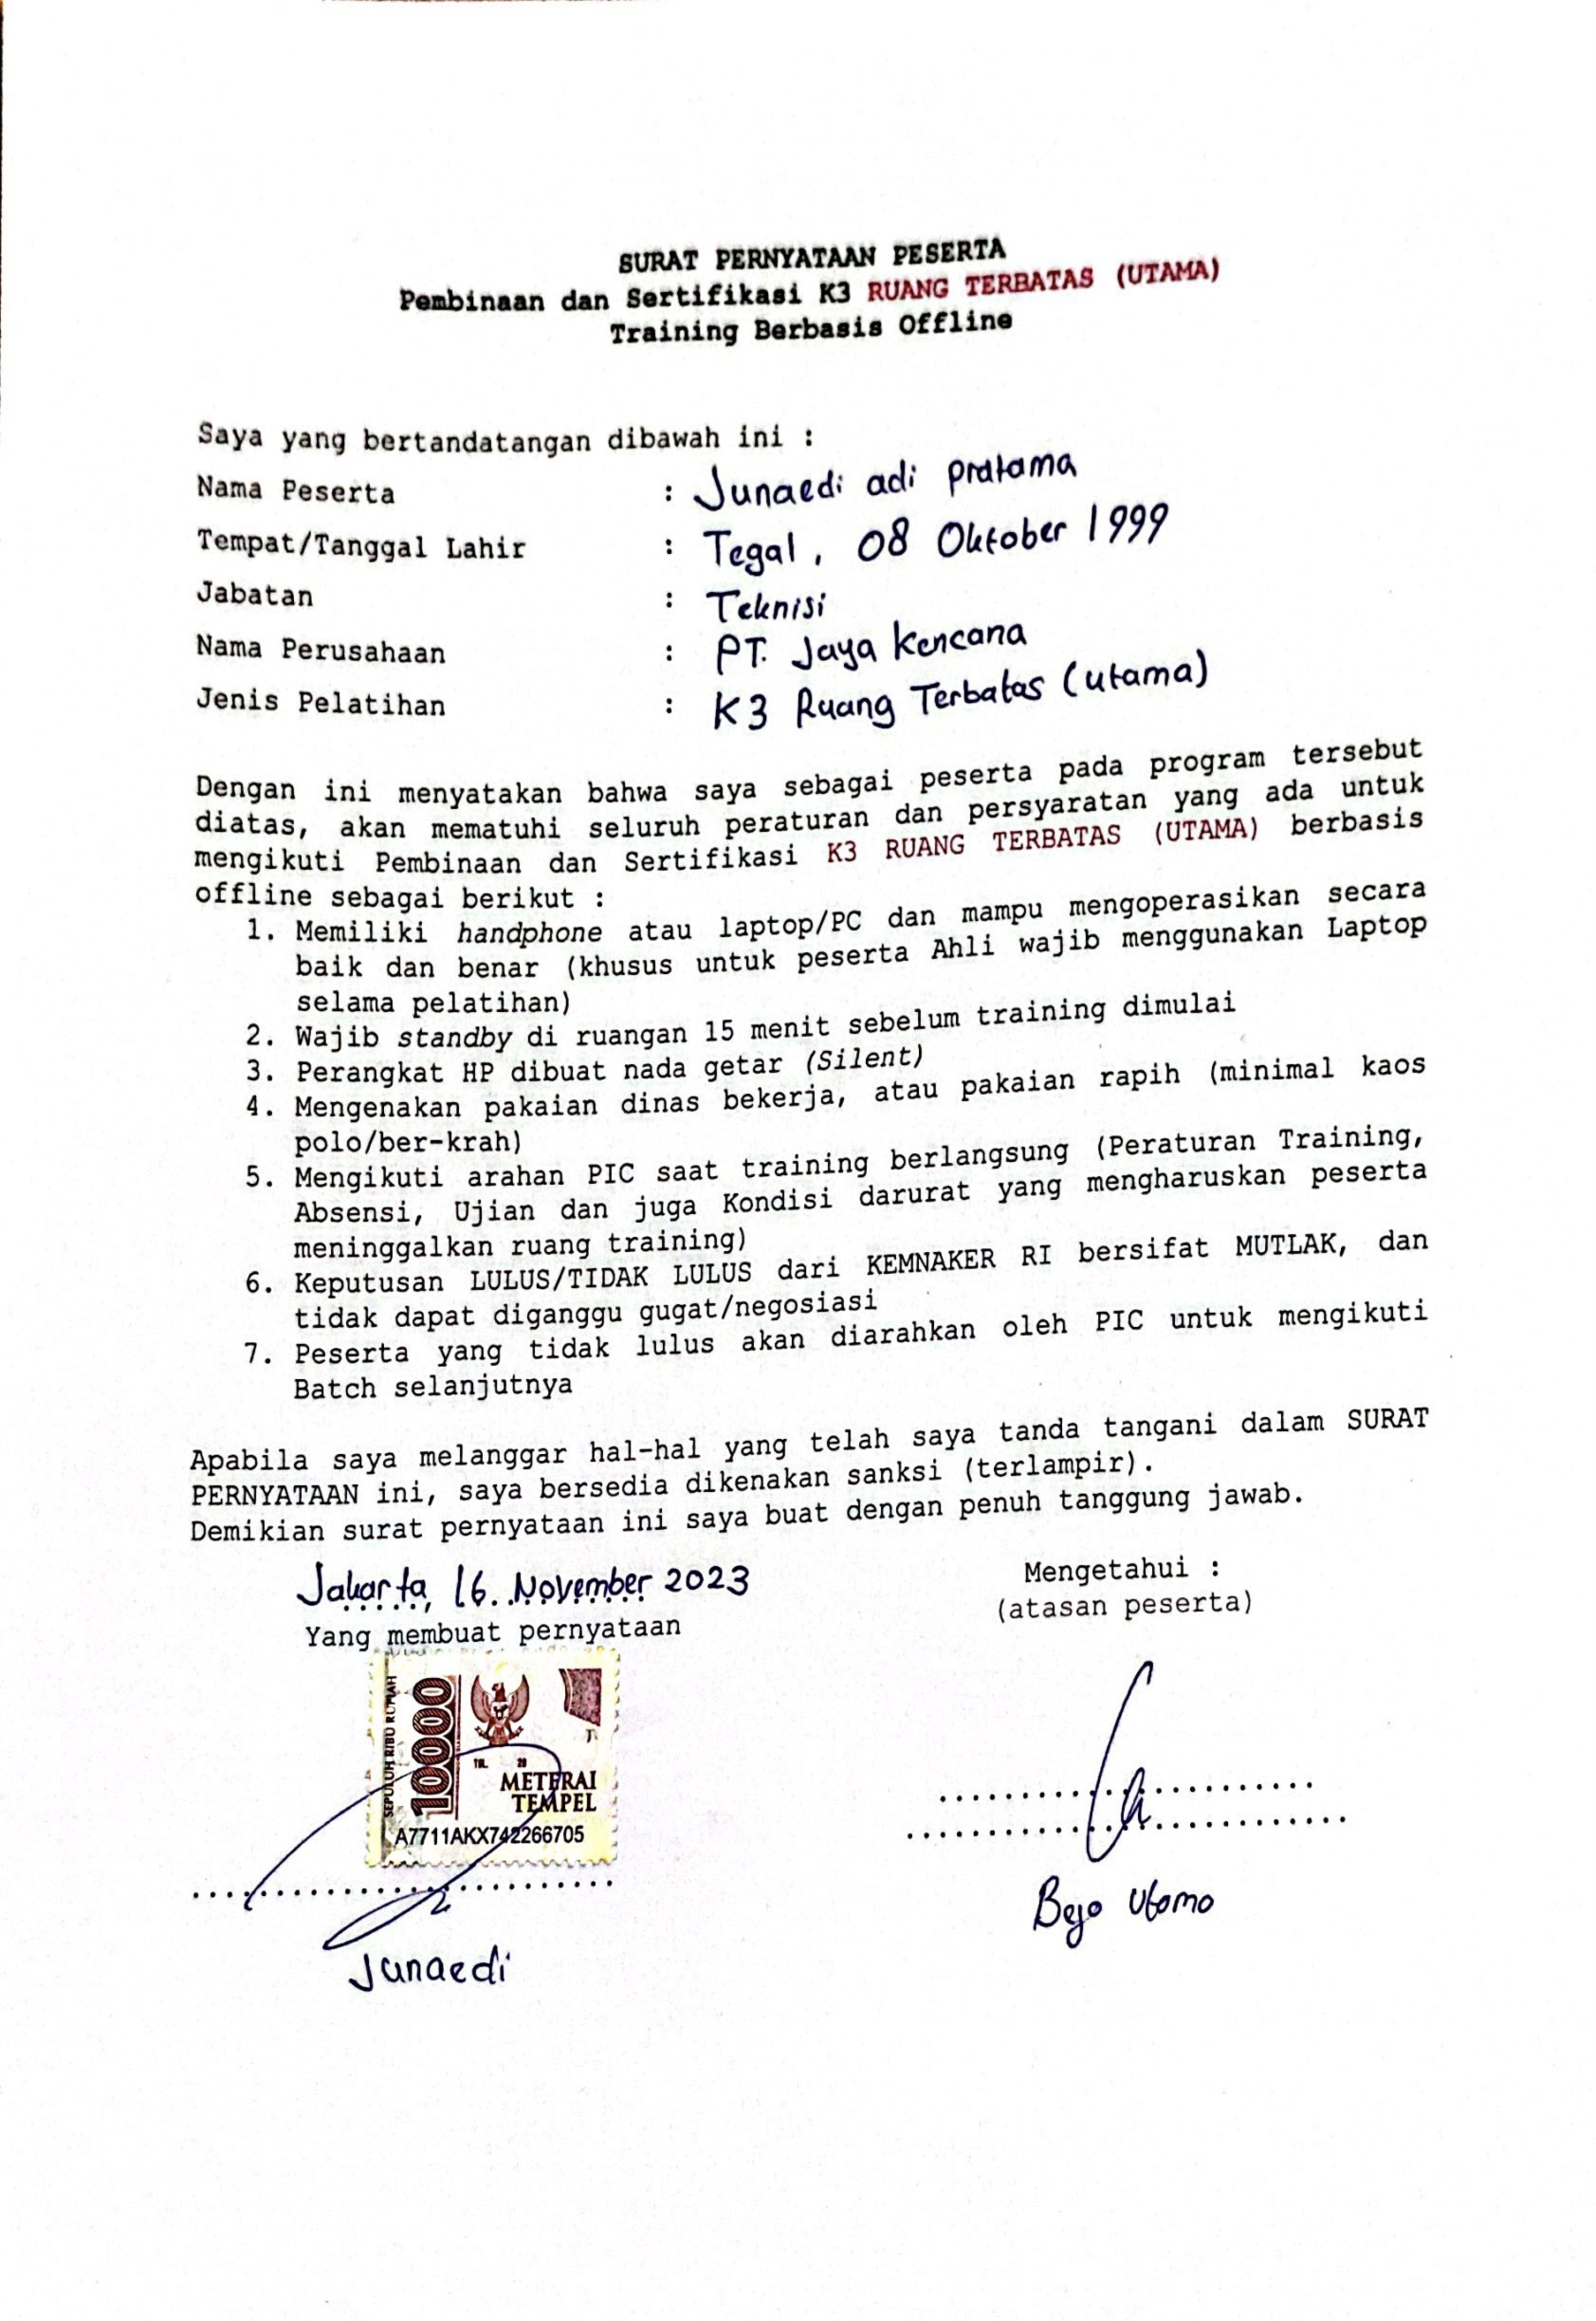 SURAT PERNYATAAN PESERTA
Pembinaan dan Sertifikasi K3 RUANG TERBATAS (UTAMA)
Training Berbasis Offline
Saya yang bertandatangan dibawah ini :
Nama Peserta : Junaedi adi pratama
Tempat/Tanggal Lahir : Tegal, 08 Oktober 1999
Jabatan : Teknisi
Nama Perusahaan : PT. Jaya Kencana
Jenis Pelatihan : K3 Ruang Terbatas (utama)
Dengan ini menyatakan bahwa saya sebagai peserta pada program tersebut
diatas, akan mematuhi seluruh peraturan dan persyaratan yang ada untuk
mengikuti Pembinaan dan Sertifikasi K3 RUANG TERBATAS (UTAMA) berbasis
offline sebagai berikut :
1. Memiliki handphone atau laptop/PC dan mampu mengoperasikan secara
baik dan benar (khusus untuk peserta Ahli wajib menggunakan Laptop
selama pelatihan)
2. Wajib standby di ruangan 15 menit sebelum training dimulai
3. Perangkat HP dibuat nada getar (Silent)
4. Mengenakan pakaian dinas bekerja, atau pakaian rapih (minimal kaos
polo/ber-krah)
5. Mengikuti arahan PIC saat training berlangsung (Peraturan Training,
Absensi, Ujian dan juga Kondisi darurat yang mengharuskan peserta
meninggalkan ruang training)
6. Keputusan LULUS/TIDAK LULUS dari KEMNAKER RI bersifat MUTLAK, dan
tidak dapat diganggu gugat/negosiasi
7. Peserta yang tidak lulus akan diarahkan oleh PIC untuk mengikuti
Batch selanjutnya
Apabila saya melanggar hal-hal yang telah saya tanda tangani dalam SURAT
PERNYATAAN ini, saya bersedia dikenakan sanksi (terlampir).
Demikian surat pernyataan ini saya buat dengan penuh tanggung jawab.
Jakarta, 16 November 2023
Yang membuat pernyataan
SEPULUH RIBU RUPIAH
10000
TGL. 20
METERAI
TEMPEL
A7711AKX742266705
Junaedi
Mengetahui :
(atasan peserta)
Bejo Utomo